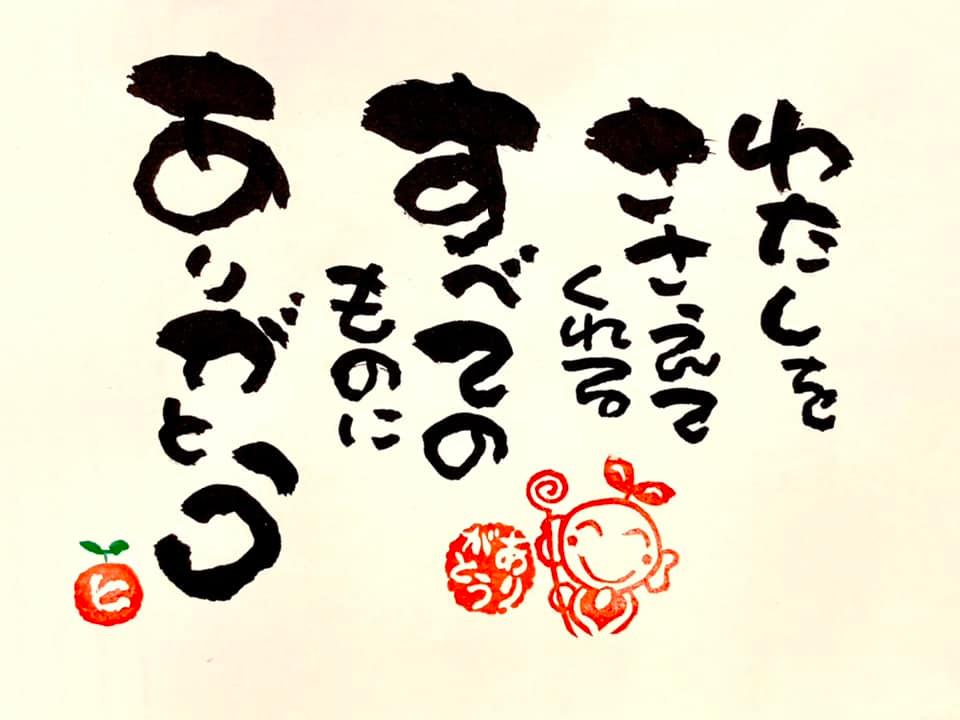 わたしを
ささえて
くれる
すべての
ものに
ありがとう
あり
がとう
ヒ